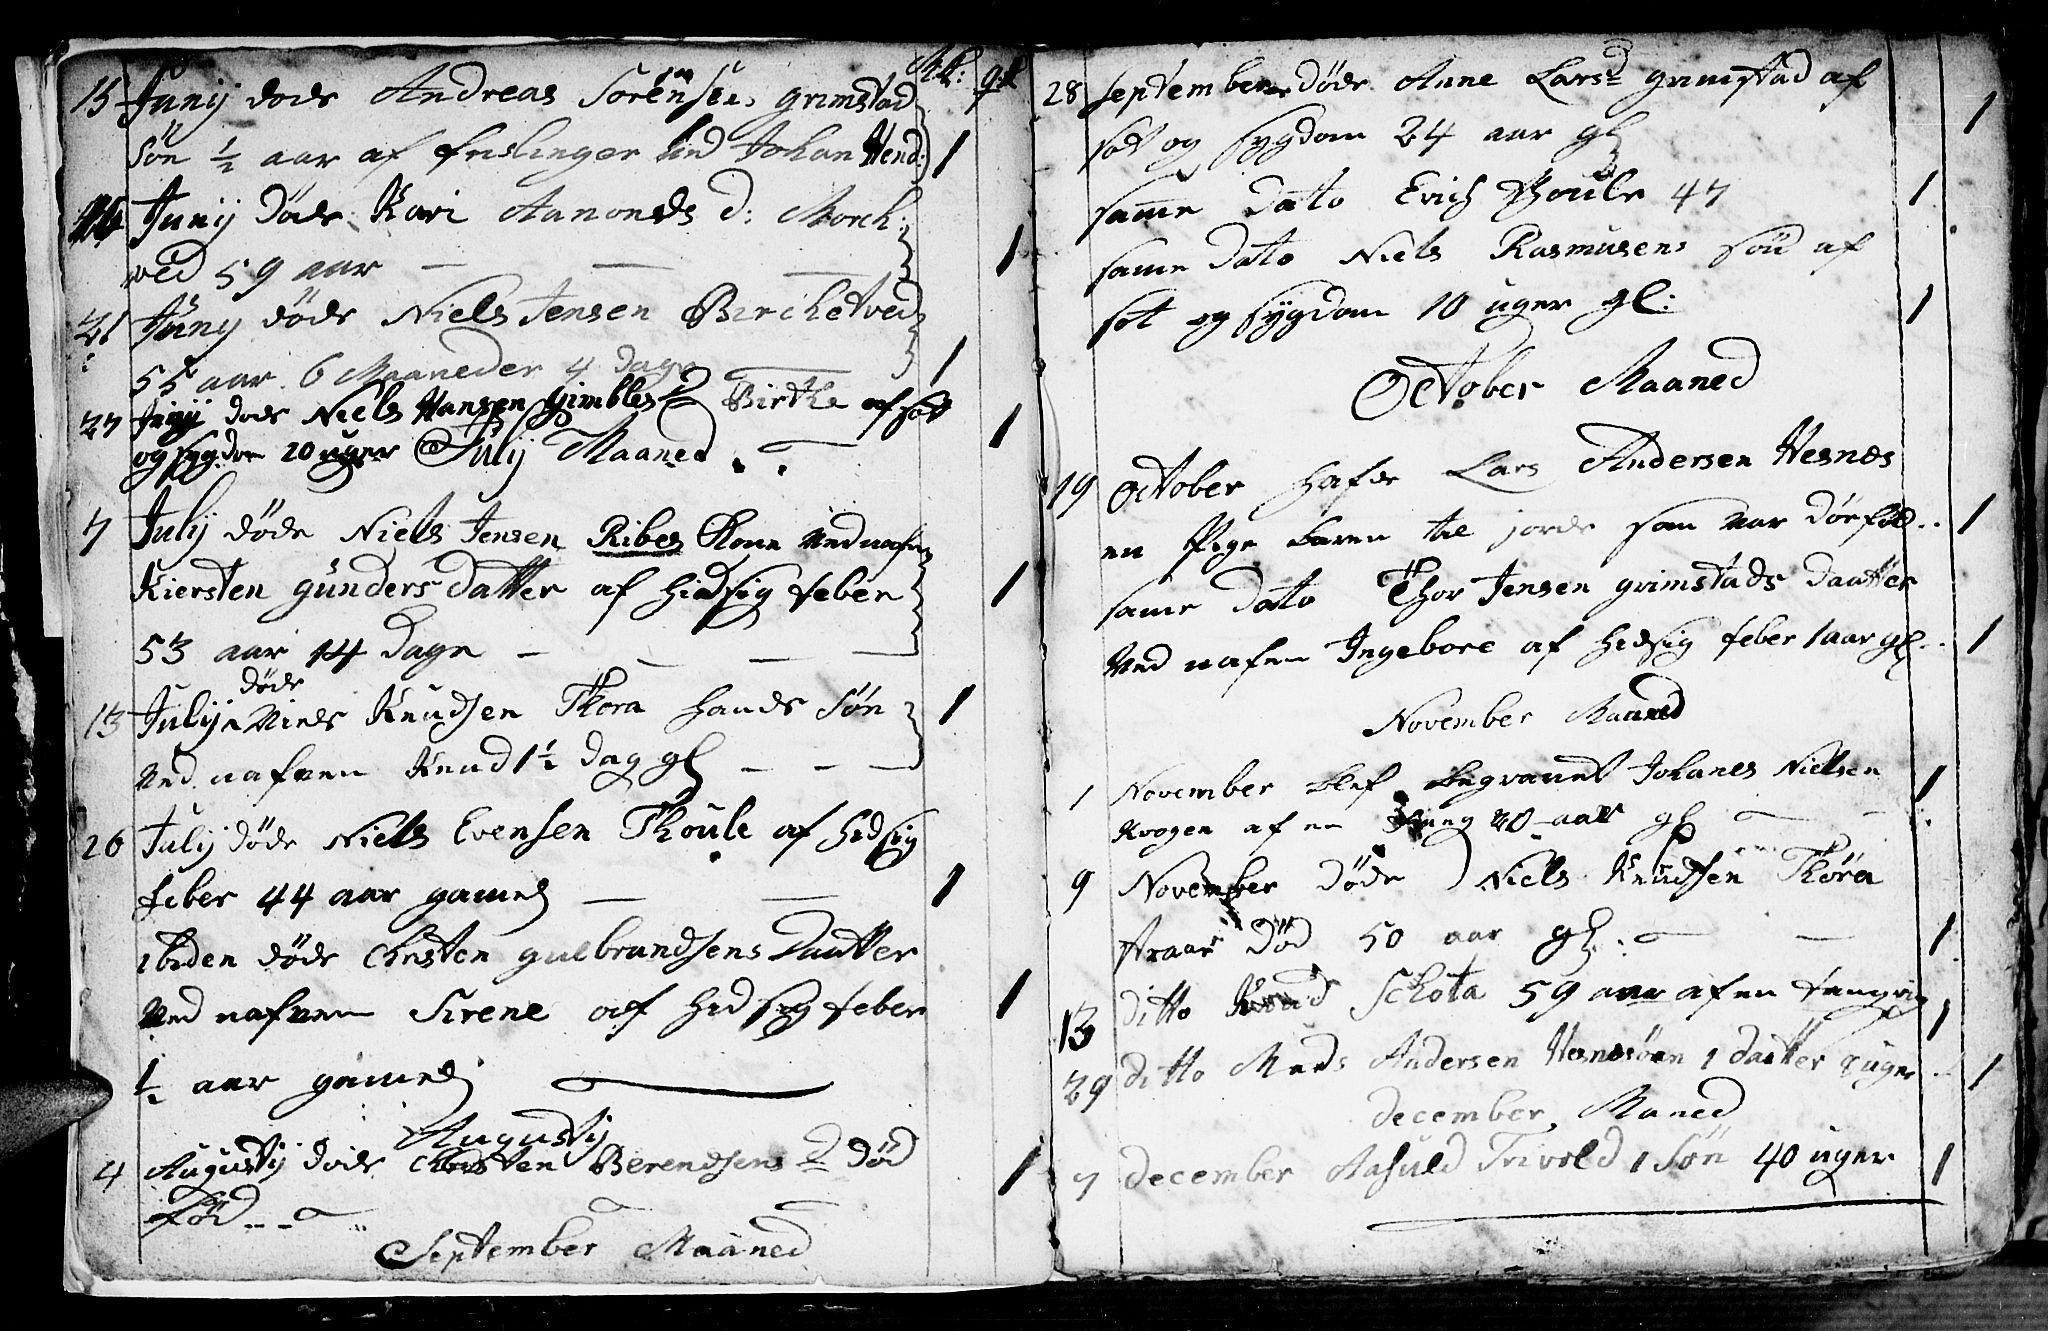 Mk: qk
15 Junij døde Andreas Sörensens grimstad
Søn ½ aar af frislinger ved Johan Hend:) 1
16 Junij Døde Kari Aamonds d: Morch:
ved 59 aar — — — 1
21 Juny døde Niels Jensen Birchetved
55 aar 6 Maaneder 4 dage — 1
27 Junij døde Niels Hansen Gimbles D Birthe af sot 1
og sygdom 20 uger Julij Maaned
7 Julij døde Niels Jensen Ribes Kone ved nafn
Kiersten günders datter af hidsig feber 1
53 aar 14 Dage — — — —
døde
13 Julij Niels Knudsen Thora hands Søn 1
Ved nafnen Knud 1½ Dag gl — — —
26 Julij døde Niels Evensen Thoule af hidsig
feber 44 aar gamel — — 1
ibiden døde Christen gulbrandsens Daatter
Ved nafnen Sirene af hidsig feber 1
½ aar gamel
Augustij
4 Augustij døde Christen Berendsens D død 1
fød
September Maaned
28 september døde Anne Larsd grimstad af
sot og sygdom 24 aar gl 1
samme Dato Erich Thoule 47 1
same dato Niels Rasmusens søn af
sot og sygdom 10 uger gl: 1
October Maaned
19 October hafde Lars Andersen Hesnes
en Pige baren til jorde som var dødfød 1
same dato Thor Jensen grimstads daatter
Ved nafnen Ingebore af hidsig feber 1 aar gl 1
November Maaned
1 November blef begravet Johanes Nielsen 1
Krogen af en 20 aar gl
9 November døde Niels Knudsen Thöra
Død 50 aar gl 1
13 ditto Knud Schota 59 aar af en 1
29 ditto Mads Andersen Hesnesöen 1 datter 8 uger 1
december Maned
7 december Aasuld Trivold 1 Søn 40 uger 1